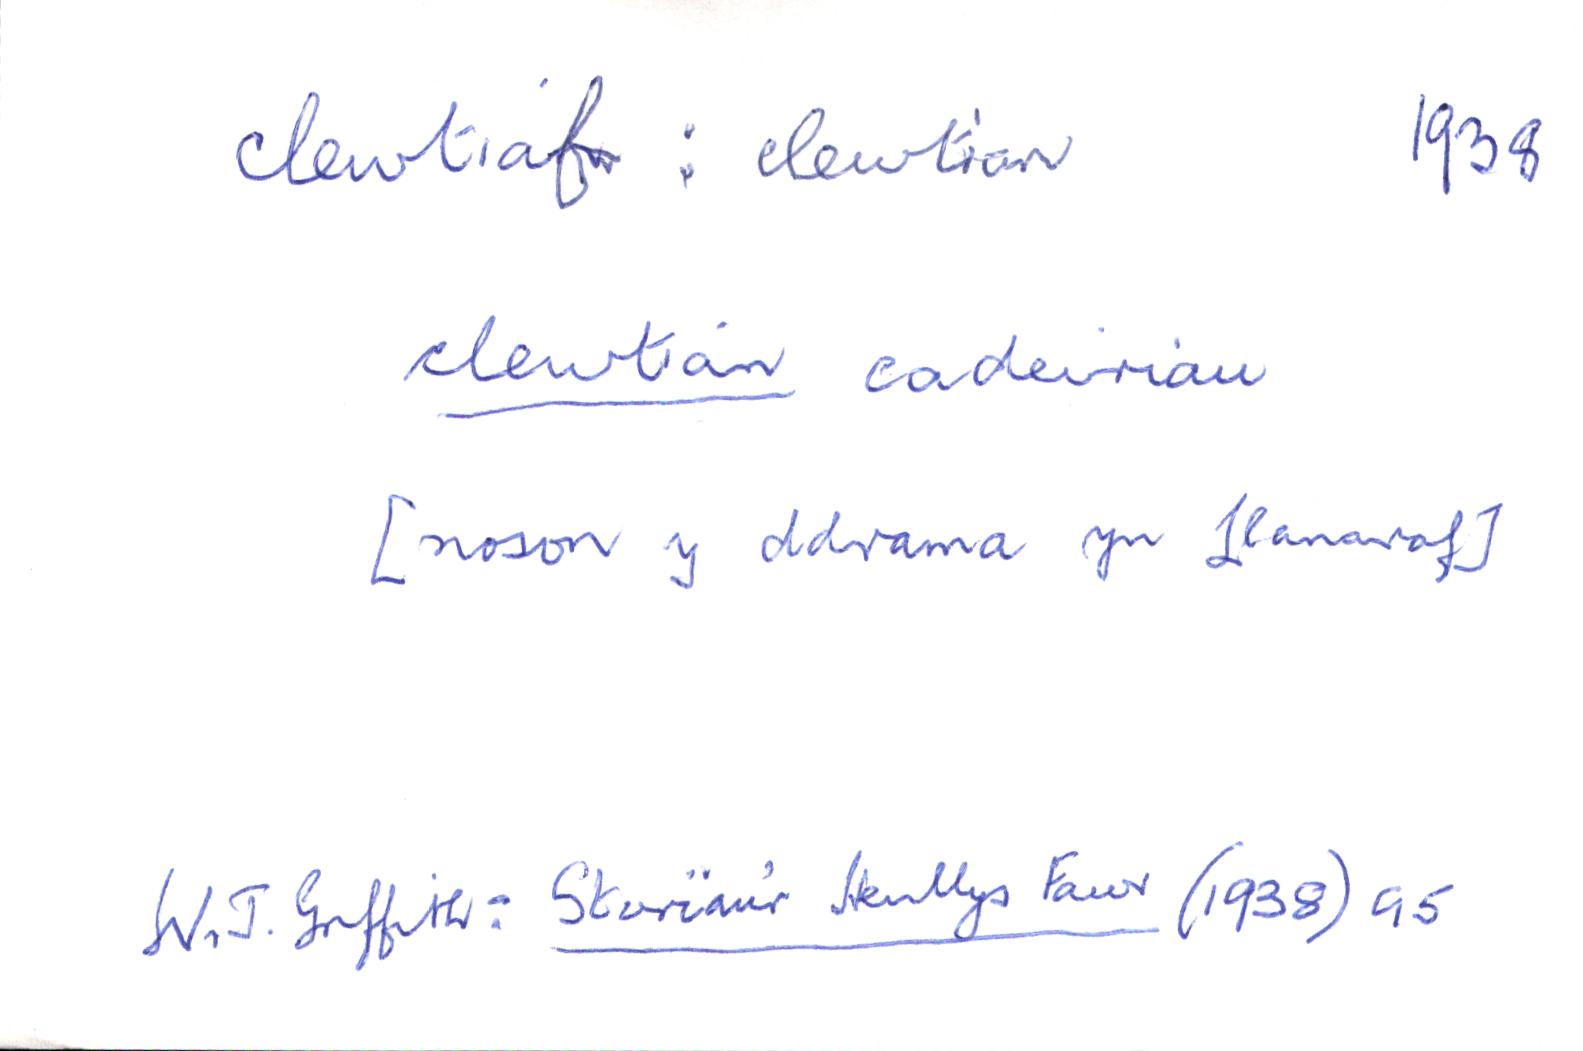 clewtiaf : clewtian 1938
clewtian cadeiriau
[noson y ddrama yn Llanaraf]
W.J. Griffith: Storïau'r Henllys Fawr (1938) 95